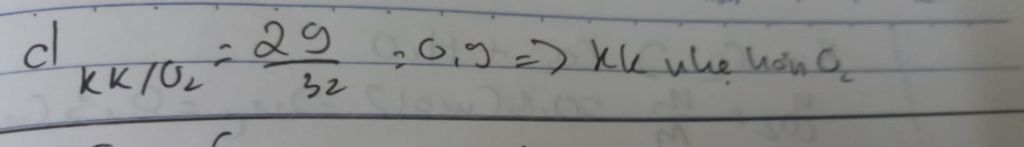 d KK/O₂ = 29/32 = 0,9 => KK nhẹ hơn O₂